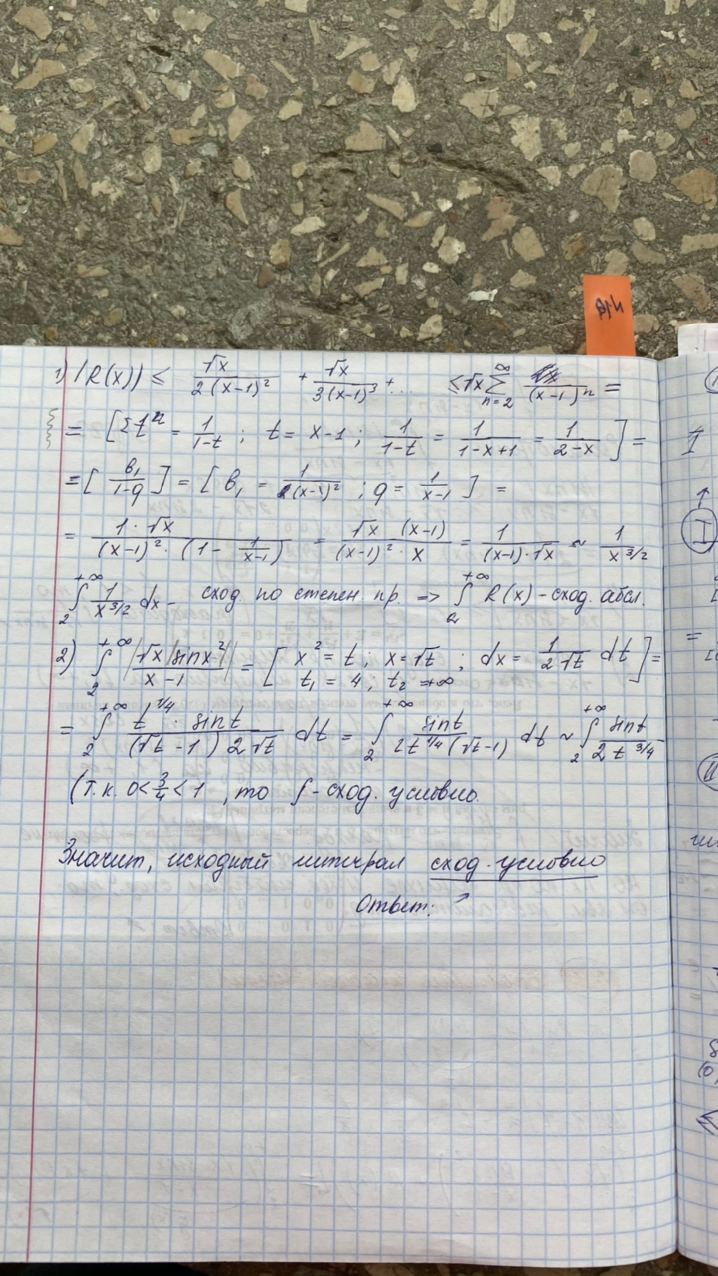 1) |R(x)) ≤ √x/(2(x-1)²) + √x/(3(x-1)³) + ... ≤ √x ∑_{n=2}^{∞} /(x-1)ⁿ =
= [Σtⁿ = 1/(1-t) ; t = x-1 ; 1/(1-t) = 1/(1-x+1) = 1/(2-x)] =
= [b₁/(1-q)] = [b₁ = 1/(x-1)² ; q = 1/(x-1)] =
= 1·√x/((x-1)²·(1 - 1/(x-1))) = √x (x-1)/((x-1)²·x) = 1/((x-1)·√x) ~ 1/x^{3/2}
∫₂^{+∞} 1/x^{3/2} dx - сход. по степен. пр. => ∫₂^{+∞} R(x) - сход. абсл.
2) ∫₂^{+∞} |√x|sinx²|/(x-1) = [x² = t ; x = √t ; dx = 1/(2√t) dt] =
t₁ = 4 ; t₂ = +∞
= ∫₂^{+∞} t^{1/4}·sint/((√t-1)2√t) dt = ∫₂^{+∞} sint/(2t^{1/4}(√t-1)) dt ~ ∫₂^{+∞} sint/(2t^{3/4})
(т.к. 0<3/4<1, то ∫-сход. условно.
Значит, исходный интеграл сход. условно
Ответ: ↗